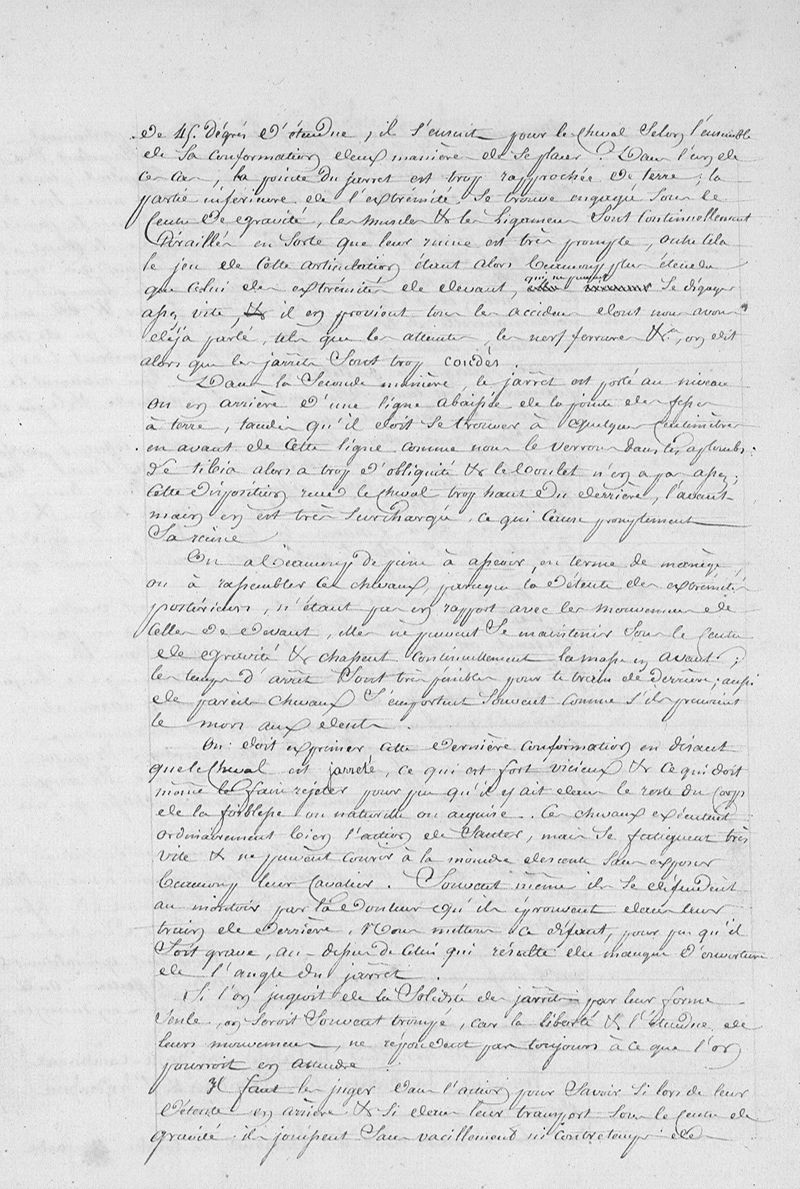 de 45. dégrés d'étendue, il s'ensuit pour le cheval selon l'ensemble
de sa conformation deux manières de se placer. Dans l'un de
ces cas, la pointe du jarret est trop rapprochée de terre; la
partie inférieure de l'extrémité se trouve engagée sous le
Centre de gravité, les muscles & les Ligamens sont continuellement
tiraillés en sorte que leur ruine est très prompte, outre cela
le jeu de cette articulation étant alors beaucoup plus étendu
que celui des extrémités de devant, qui ne peuvent se dégager
assez vite, il en provient tous les accidens dont nous avons
déjà parlé, tels que les atteintes, les nerf ferrures &.a, on dit
alors que les jarrets sont trop coudés.
Dans la seconde manière, le jarret est porté au niveau
ou en arrière d'une ligne abaissée de la pointe des fesses
à terre, tandis qu'il doit se trouver à quelques centimètres
en avant de cette ligne comme nous le verrons dans les aplombs.
Le tibia alors a trop d'obliquité & le boulet n'en a pas assez;
cette disposition rend le cheval trop haut du derrière, l'avant-
main en est très surchargée, ce qui cause promptement
sa ruine.
On a beaucoup de peine à asseoir, en terme de manège,
ou à rassembler ces chevaux, parceque la détente des extrémités
postérieurs, n'étant pas en rapport avec les mouvemens de
celles de devant, elles ne peuvent se maintenir sous le centre
de gravité & chassent continuellement la masse en avant;
les temps d'arrêt sont très pénibles pour le train de derrière; aussi
de pareils chevaux s'emportent souvent comme s'ils prenaient
le mors aux dents.
On doit exprimer cette dernière conformation en disant
que le cheval est jarreté, ce qui est fort vicieux & ce qui doit
même le faire rejeter pour peu qu'il y ait dans le reste du corps
de la foiblesse ou naturelle ou acquise. Ces chevaux exécutent
ordinairement bien l'action de sauter, mais se fatiguent très
vite & ne peuvent courir à la moindre descente sans exposer
beaucoup leur cavalier. Souvent même ils se défendent
au montoir par la douleur qu'ils éprouvent dans leur
train de derrière. Nous mettons ce défaut, pour peu qu'il
soit grave, au-dessus de celui qui résulte du manque d'ouverture
de l'angle du jarret.
Si l'on jugeoit de la solidité des jarrets par leur forme
seule, on seroit souvent trompé, car la liberté & l'étendue de
leurs mouvemens, ne répondent pas toujours à ce que l'on
pourroit en attendre.
Il faut les juger dans l'action pour savoir si lors de leur
détente en arrière & si dans leur transport sous le centre de
gravité ils jouissent sans vacillement ni contretemps de